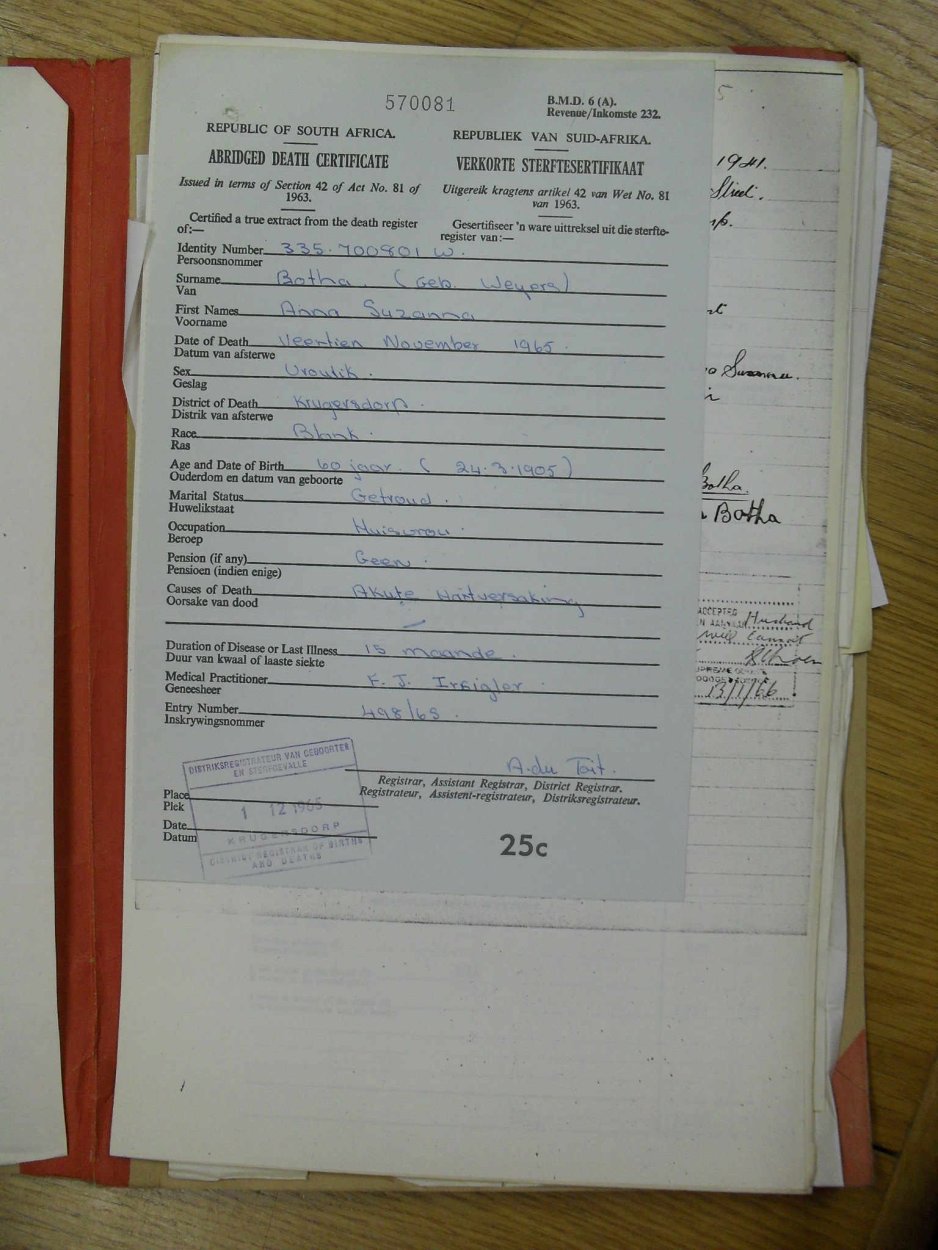 570081
B.M.D. 6 (A).
Revenue/Inkomste 232.
REPUBLIC OF SOUTH AFRICA.
REPUBLIEK VAN SUID-AFRIKA.
ABRIDGED DEATH CERTIFICATE
VERKORTE STERFTESERTIFIKAAT
Issued in terms of Section 42 of Act No. 81 of
1963.
Uitgereik kragtens artikel 42 van Wet No. 81
van 1963.
Certified a true extract from the death register
of:—
Gesertifiseer 'n ware uittreksel uit die sterfte-
register van:—
Identity Number 335.700801 W.
Persoonsnommer
Surname Botha (Geb. Weyers)
Van
First Names Anna Suzanna
Voorname
Date of Death Veertien November 1965.
Datum van afsterwe
Sex Vroulik.
Geslag
District of Death Krugersdorp.
Distrik van afsterwe
Race Blank.
Ras
Age and Date of Birth 60 jaar. (24.3.1905)
Ouderdom en datum van geboorte
Marital Status Getroud.
Huwelikstaat
Occupation Huisvrou.
Beroep
Pension (if any) Geen.
Pensioen (indien enige)
Causes of Death Akute Hartversaking
Oorsake van dood
Duration of Disease or Last Illness 15 maande.
Duur van kwaal of laaste siekte
Medical Practitioner F. J.
Geneesheer
Entry Number 498/65.
Inskrywingsnommer
A. du Toit.
Registrar, Assistant Registrar, District Registrar.
Registrateur, Assistent-registrateur, Distriksregistrateur.
Place
Plek
Date
Datum
DISTRIKSREGISTRATEUR VAN GEBOORTES
EN STERFGEVALLE
1 12 1965
KRUGERSDORP
DISTRICT REGISTRAR OF BIRTHS
AND DEATHS
25c
1941.
Street.
Botha.
Botha
ACCEPTED
Husband
will cannot
13/1/66